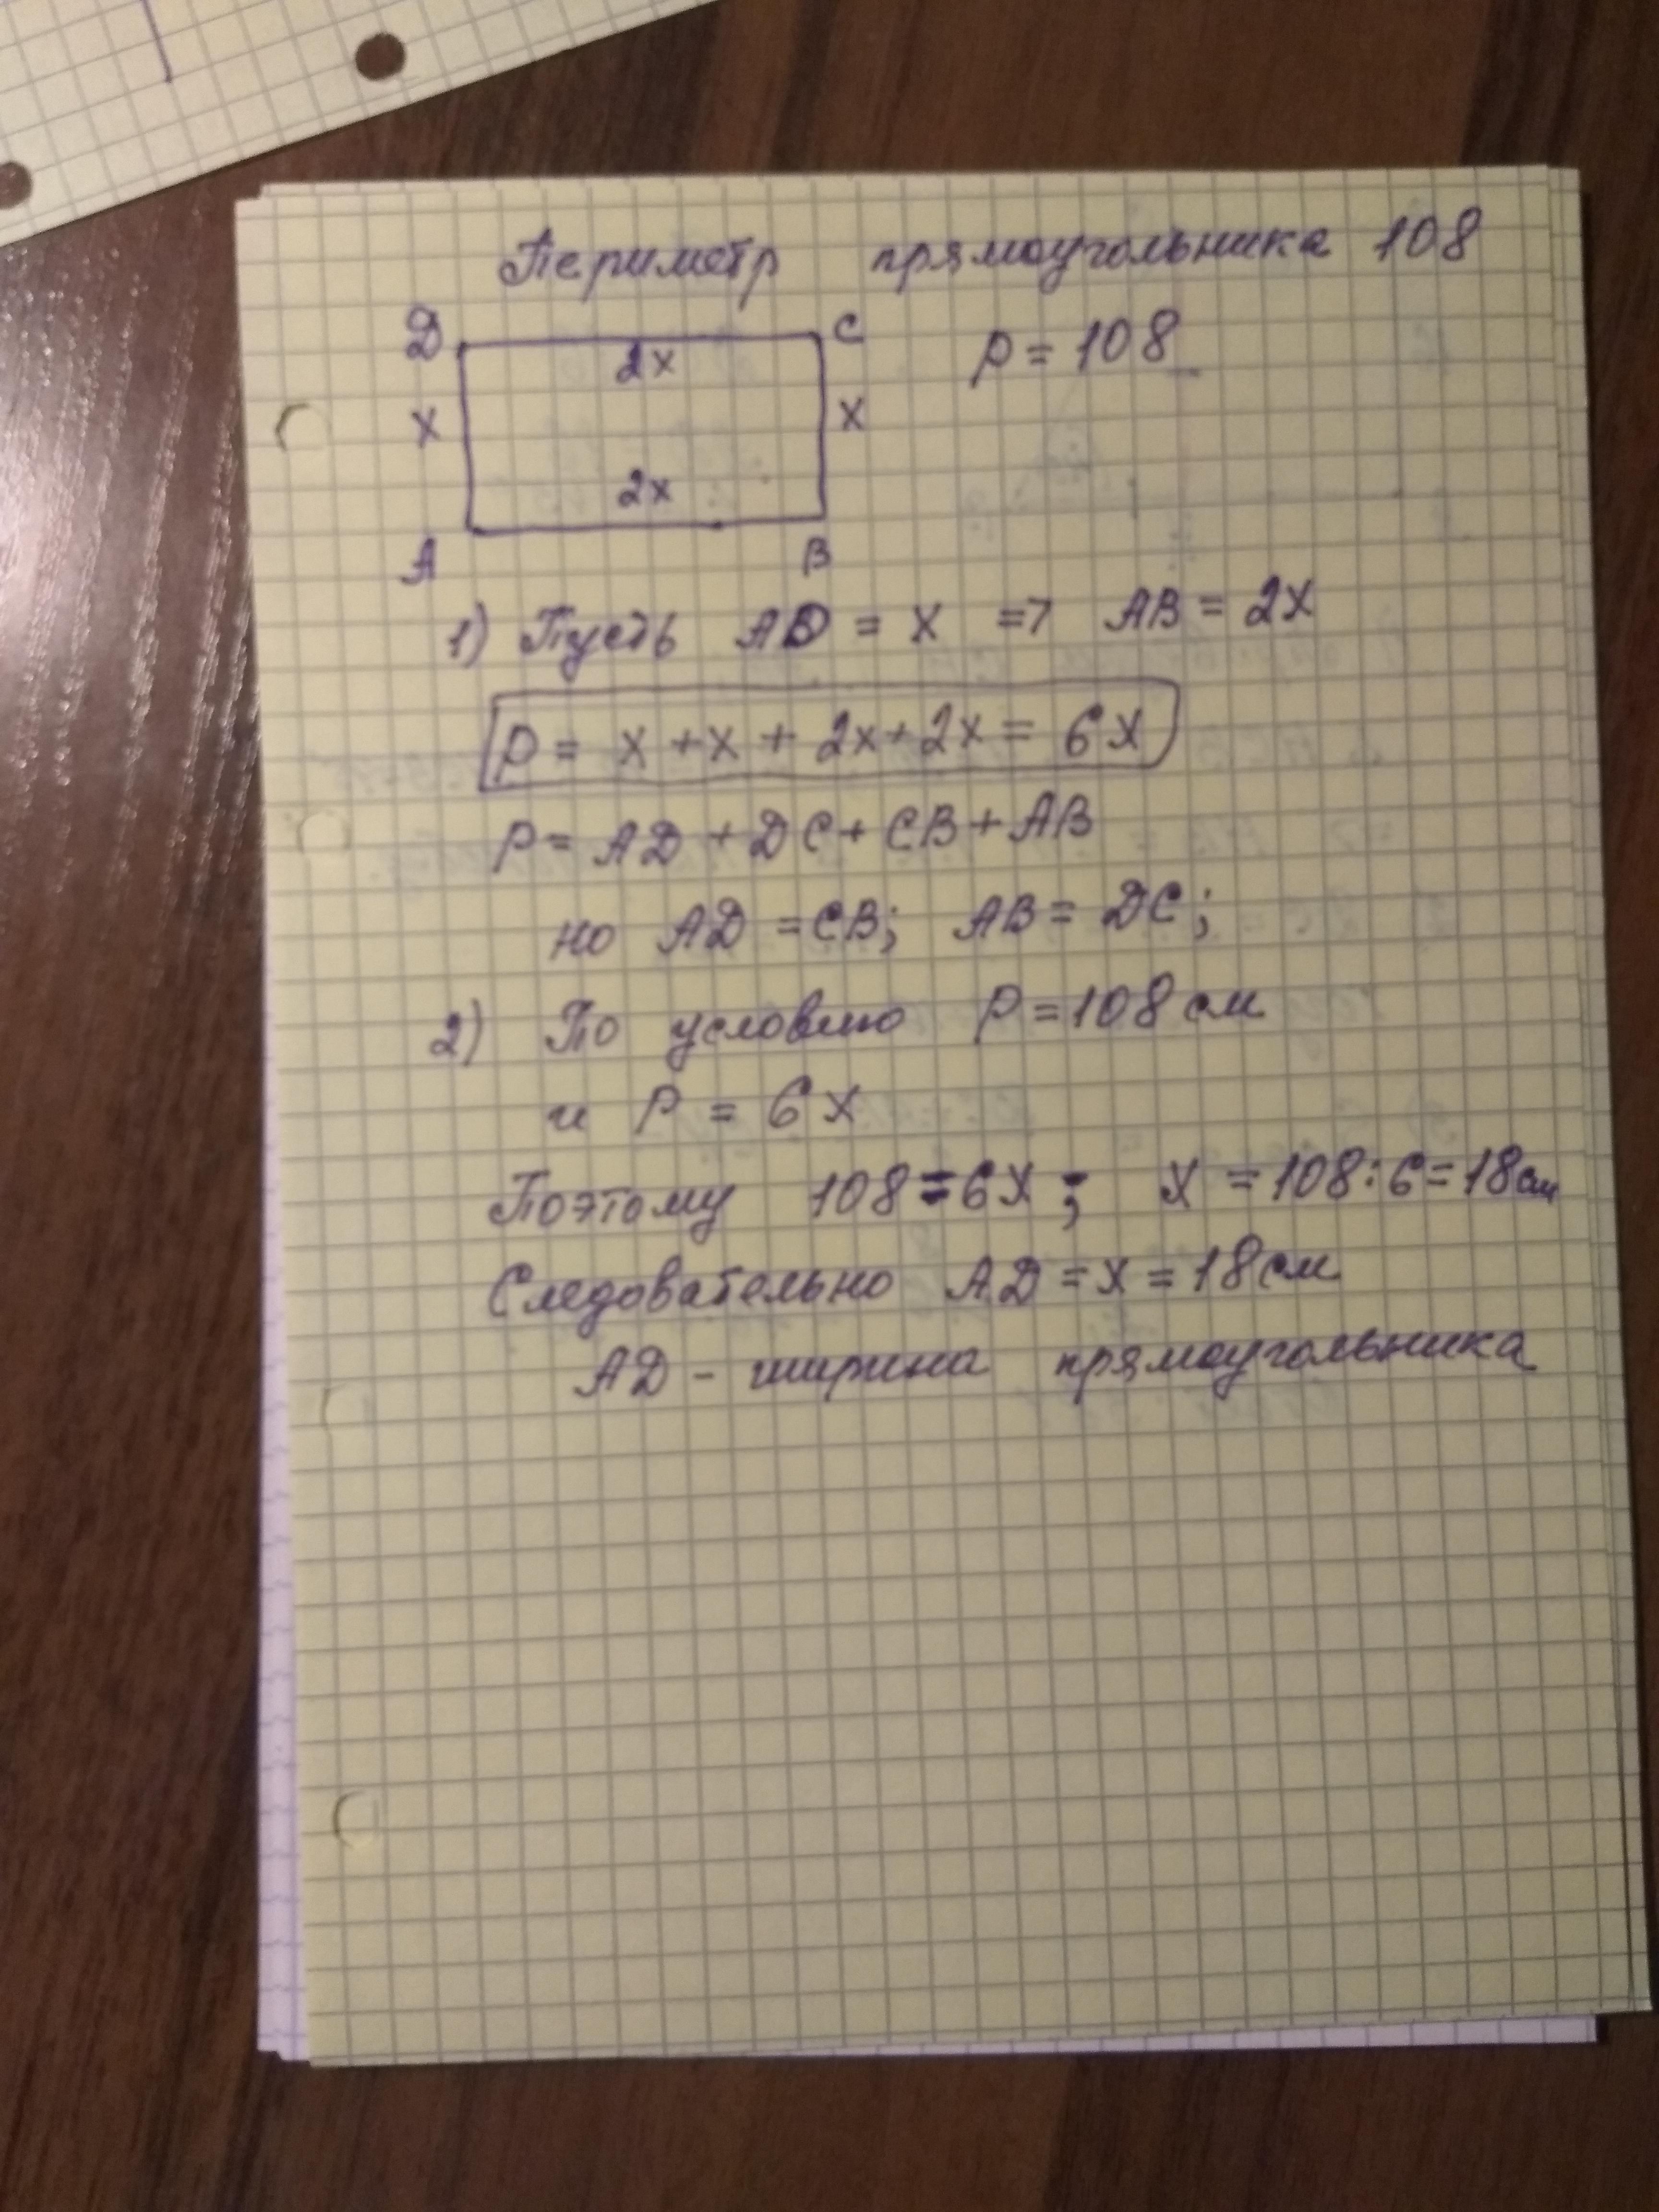 Периметр прямоугольника 108
D C P = 108
2x
x x
2x
A B
1) Пусть AD = x => AB = 2x
P = x + x + 2x + 2x = 6x
P = AD + DC + CB + AB
но AD = CB; AB = DC;
2) По условию P = 108 см
и P = 6x
Поэтому 108 = 6x; x = 108 : 6 = 18 см
Следовательно AD = x = 18 см
AD - ширина прямоугольника